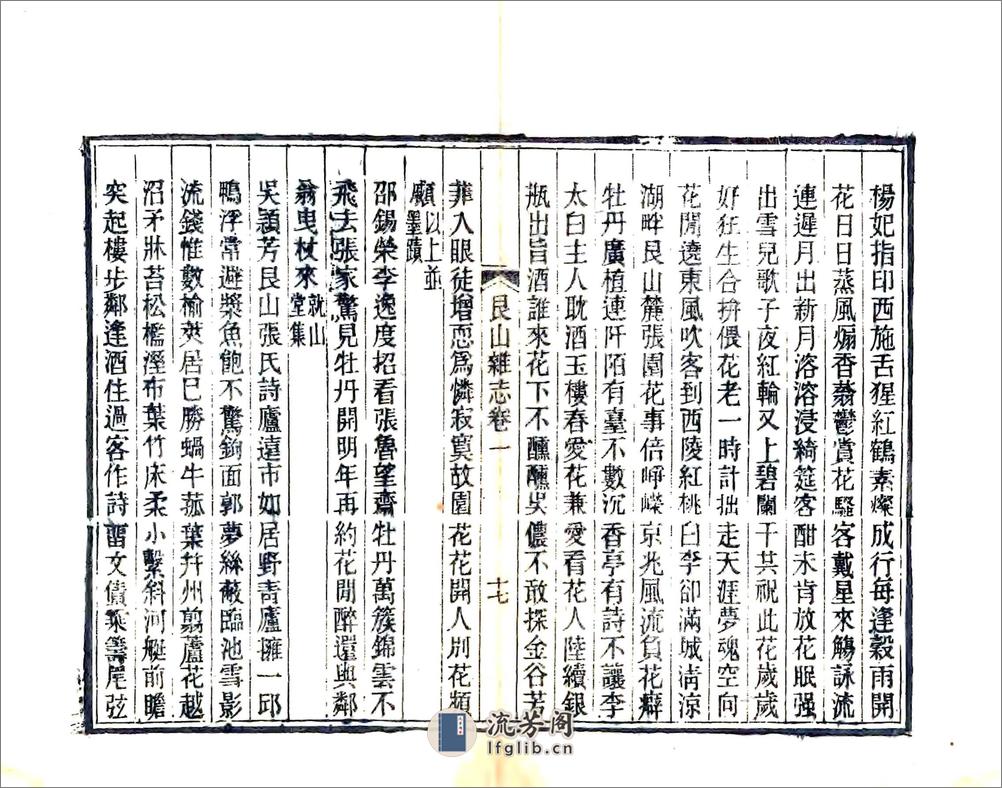 楊妃指印西施舌猩紅鶴素燦成行每逢穀雨開
花日日蒸風煽香蓊鬱賞花騷客戴星來觴詠流
連遲月出新月溶溶浸綺筵客酣未肯放花眠强
出雪兒歌子夜紅輪又上碧闌干共祝此花歲歲
好狂生合拚偎花老一時計拙走天涯夢魂空向
花間遶東風吹客到西陵紅桃白李卻滿城淸凉
湖畔艮山麓張園花事倍崢嶸京兆風流負花癖
牡丹廣植連阡陌有臺不數沉香亭有詩不讓李
太白主人耽酒玉樓春愛花兼愛看花人陸續銀
瓶出旨酒誰來花下不醺醺吳儂不敢探金谷芳
艮山雜志卷一
十七
菲入眼徒增恧爲憐寂寞故園花花開人別花頻
顧以上並
墨蹟
邵錫榮李逸度招看張魯望齋牡丹萬簇錦雲不
飛去張家驚見牡丹開明年再約花開醉還與鄰
翁曳杖來就山
堂集
吳穎芳艮山張氏詩廬遠市如居野靑廬擁一邱
鴨浮常避槳魚飽不驚鉤面郭夢絲蔽臨池雪影
流錢惟數榆莢居已勝蝸牛菰葉幷州翦蘆花越
沼矛牀苔松檻溼布葉竹床柔小繫斜河艇前瞻
突起樓步鄰逢酒住過客作詩畱文債乘籌尾弦
流芳阁
lfglib.cn